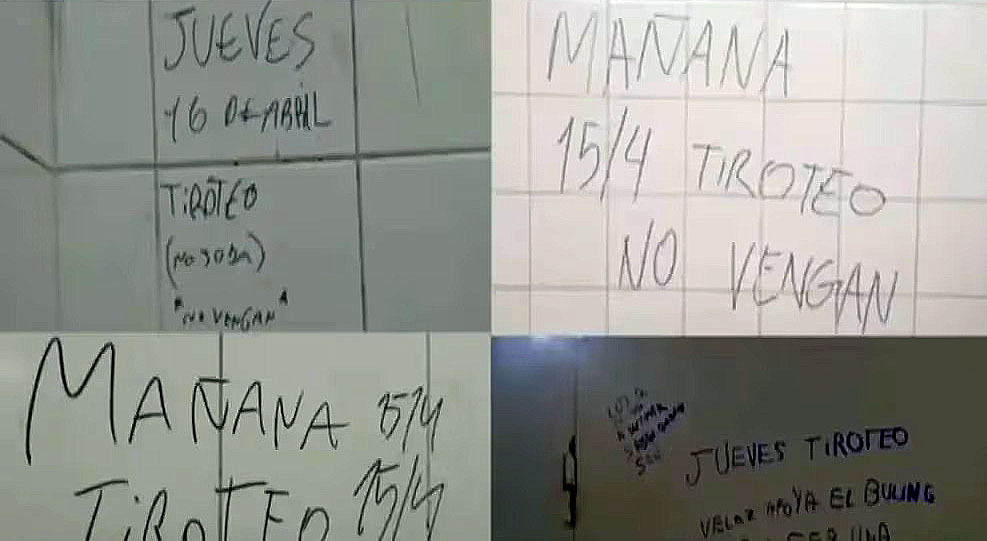 JUEVES
16 DE ABRIL
TIROTEO
"NO VENGAN"
MAÑANA
15/4 TIROTEO
NO VENGAN
MAÑANA 15/4
TIROTEO 15/4
JUEVES TIROTEO
VELAZ APOYA EL BULING
SER UNA